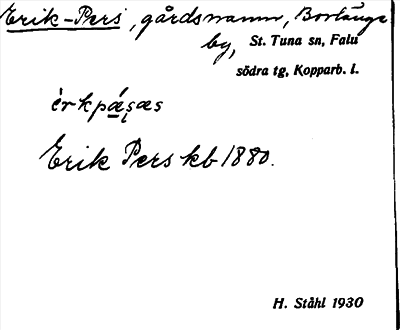 Erik-Pers, gårdsnamn, Borlänge
by, St. Tuna sn, Falu
södra tg, Kopparb. l.
érkpæ̀s̨æs
Erik Pers kb 1880.
H. Ståhl 1930